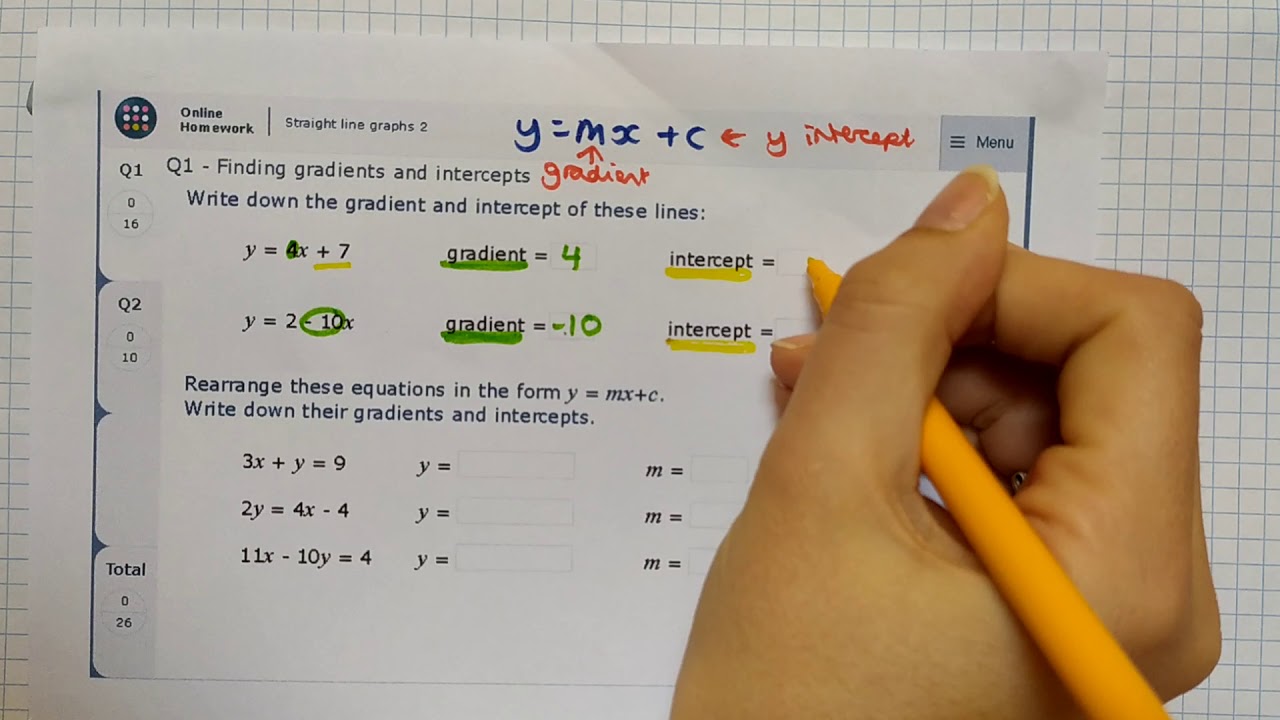 Online Homework
Straight line graphs 2
y = mx + c ← y intercept
↑
gradient
≡ Menu
Q1
0
16
Q1 - Finding gradients and intercepts
Write down the gradient and intercept of these lines:
y = 4x + 7 gradient = 4 intercept =
y = 2 - 10x gradient = -10 intercept =
Q2
0
10
Rearrange these equations in the form y = mx+c.
Write down their gradients and intercepts.
3x + y = 9 y = m =
2y = 4x - 4 y = m =
11x - 10y = 4 y = m =
Total
0
26